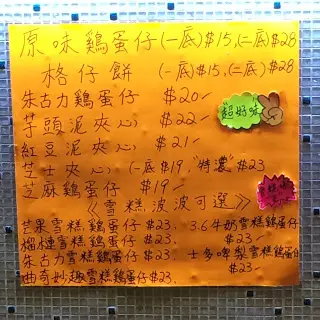 原味鷄蛋仔(一底)$15,(二底)$28
格仔餅 (一底)$15,(二底)$28
朱古力鷄蛋仔 $20
芋頭泥夾心 $22
紅豆泥夾心 $21
芝士夾心 (一底$19, "特濃"$23
芝麻鷄蛋仔 $19
超好味
《雪糕波波可選》
芒果雪糕鷄蛋仔 $23.
榴槤雪糕鷄蛋仔 $23.
朱古力雪糕鷄蛋仔 $23.
曲奇妙趣雪糕鷄蛋仔 $23.
3.6牛奶雪糕鷄蛋仔
$23.
士多啤梨雪糕鷄蛋仔
$23.